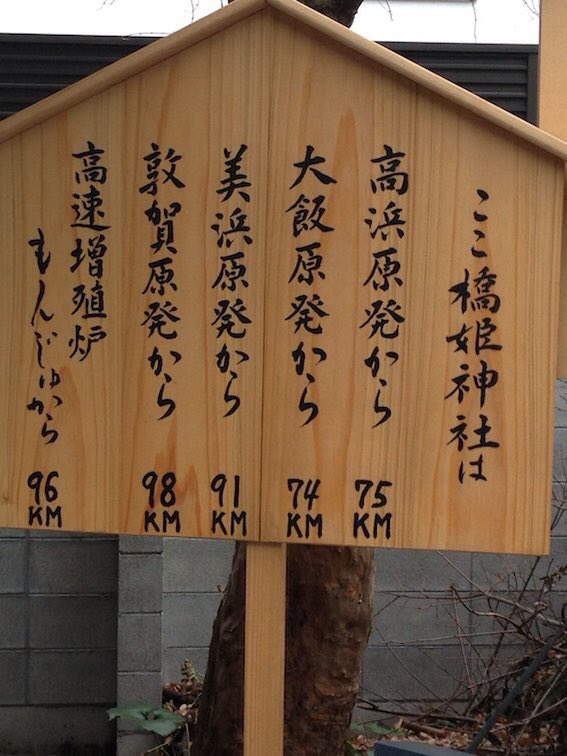 ここ橋姫神社は
高浜原発から 75KM
大飯原発から 74KM
美浜原発から 91KM
敦賀原発から 98KM
高速増殖炉
もんじゅから 96KM